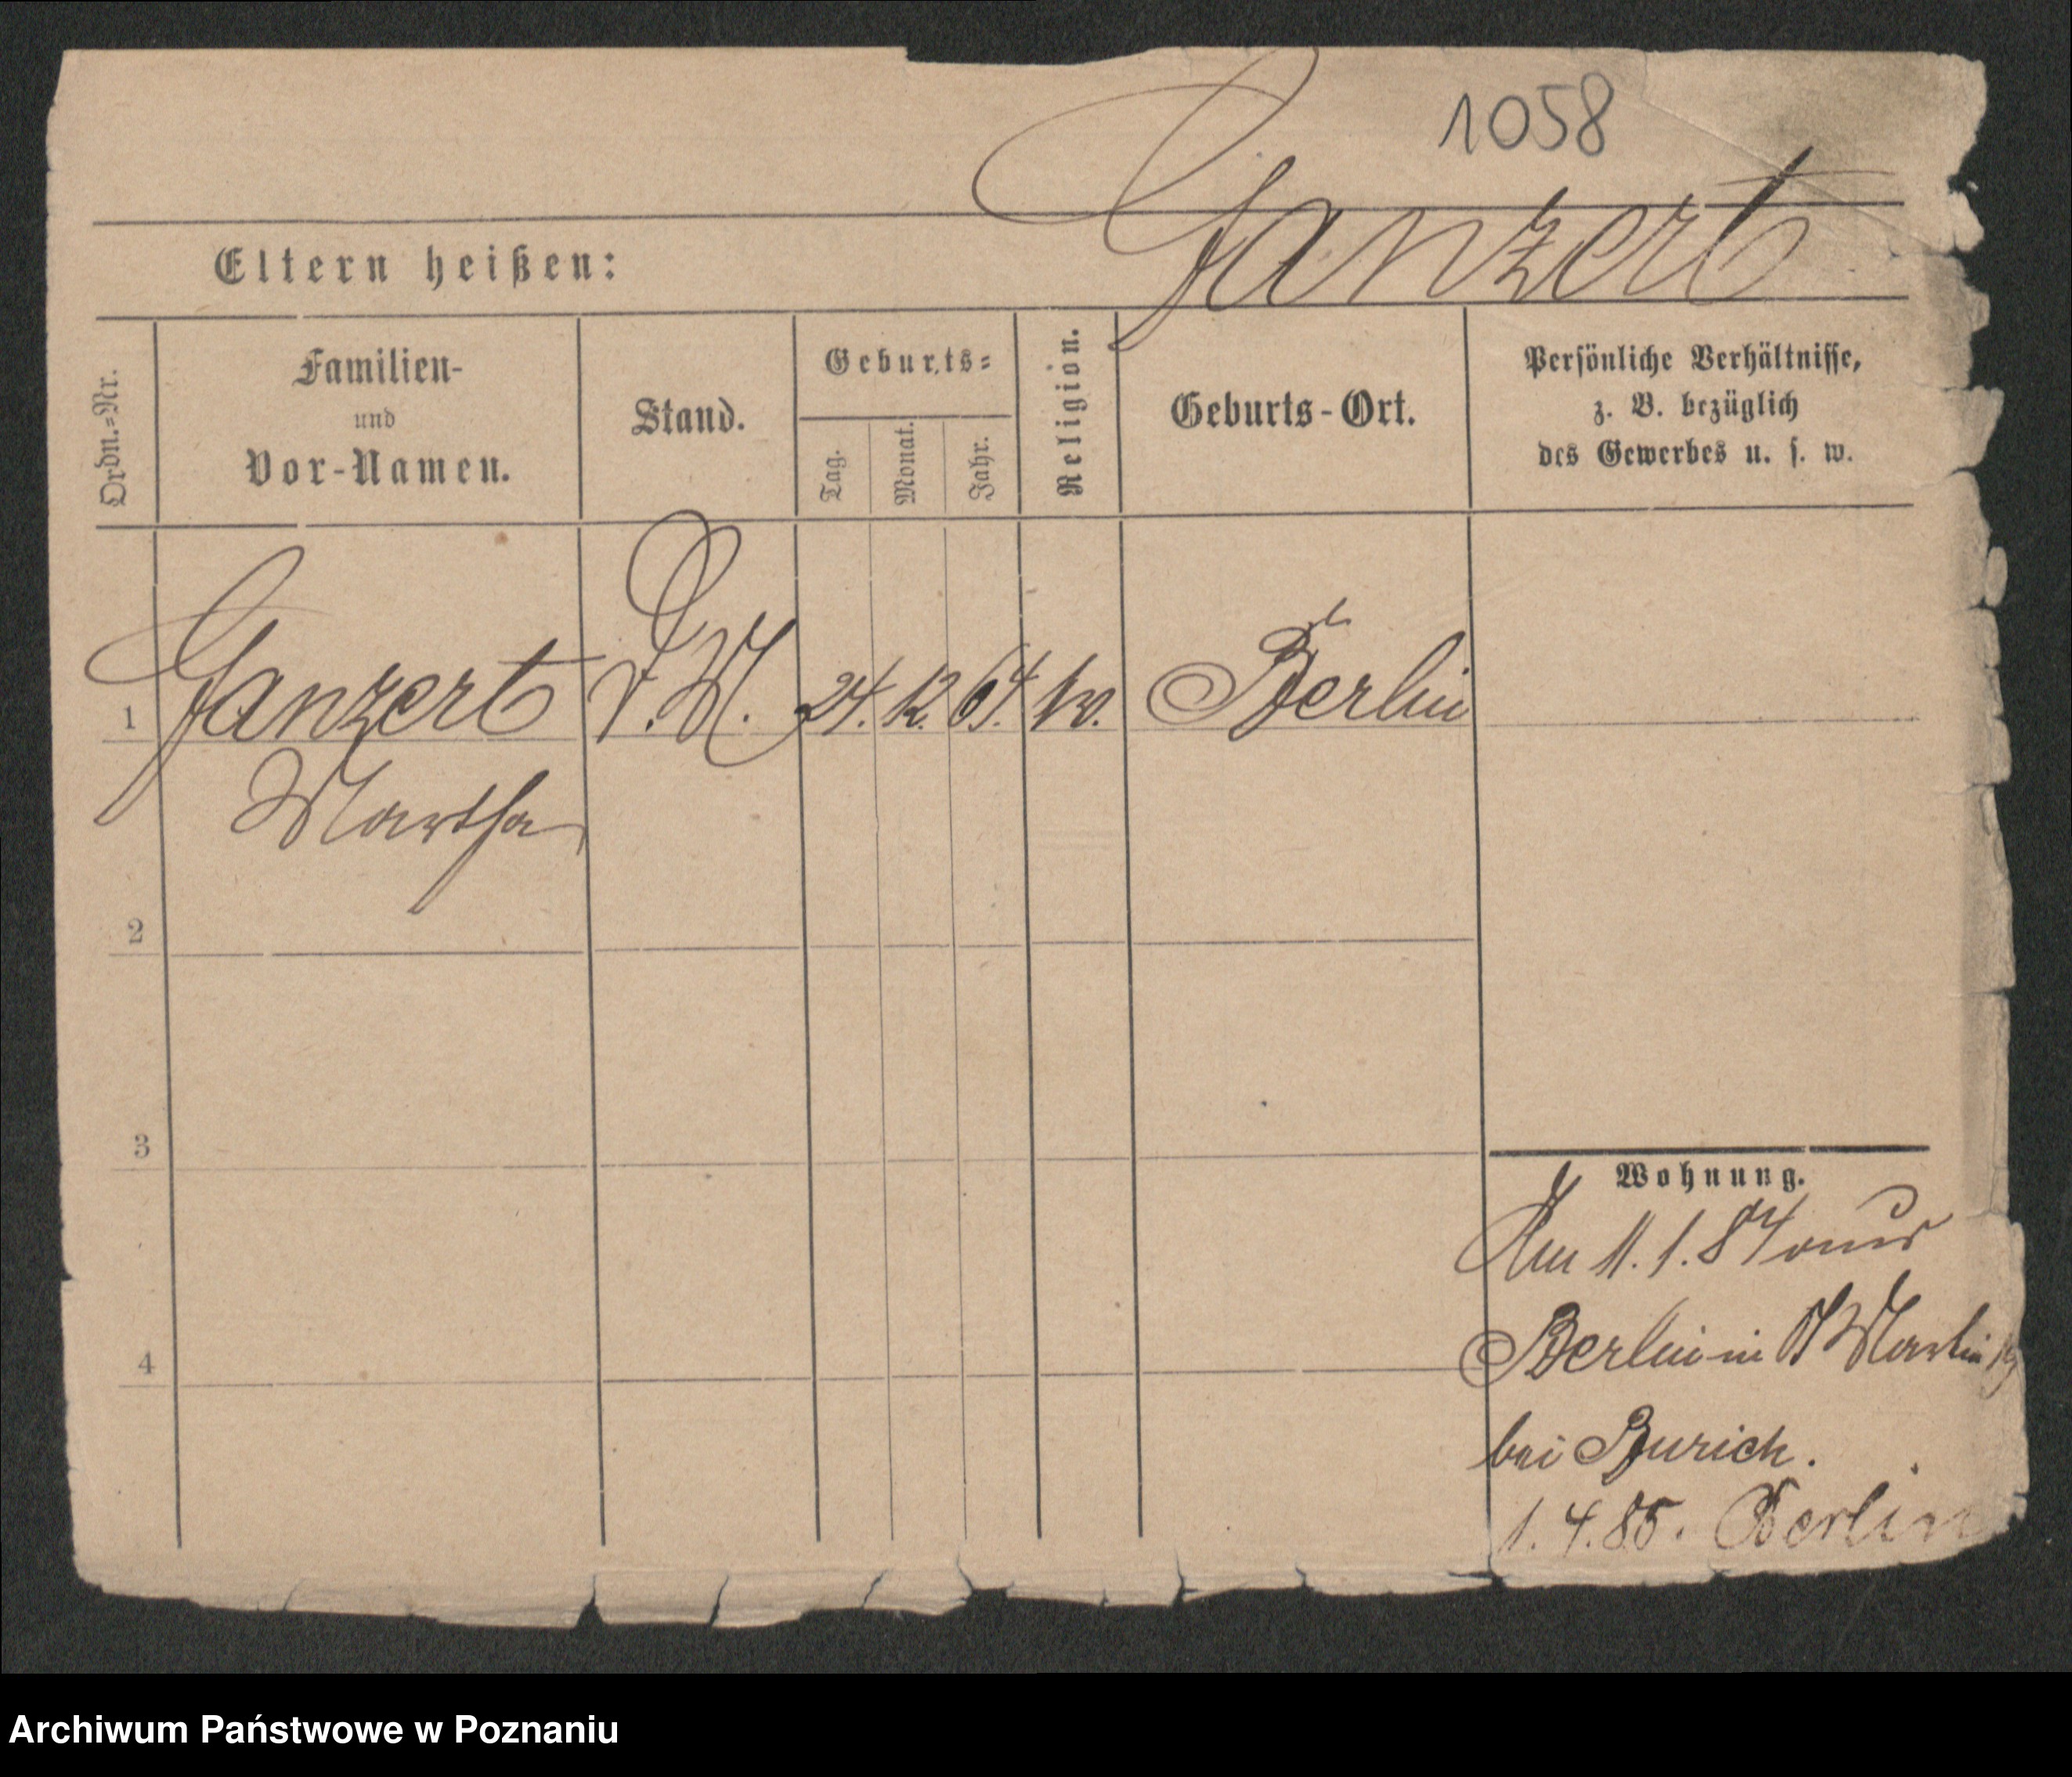 1058
Ganzert
Eltern heißen:
Ordn.=Nr.
Familien-
und
Vor-Namen.
Stand.
Geburts=
Tag.
Monat.
Jahr.
Religion.
Geburts-Ort.
Persönliche Verhältnisse,
z. B. bezüglich
des Gewerbes u. s. w.
1 Ganzert 24. 12. 64. Berlin
Martha
2
3
4
Wohnung.
Am 11. 1. 84 aus
Berlin in St Martin
bei Zurich.
1. 4. 85. Berlin
Archiwum Państwowe w Poznaniu